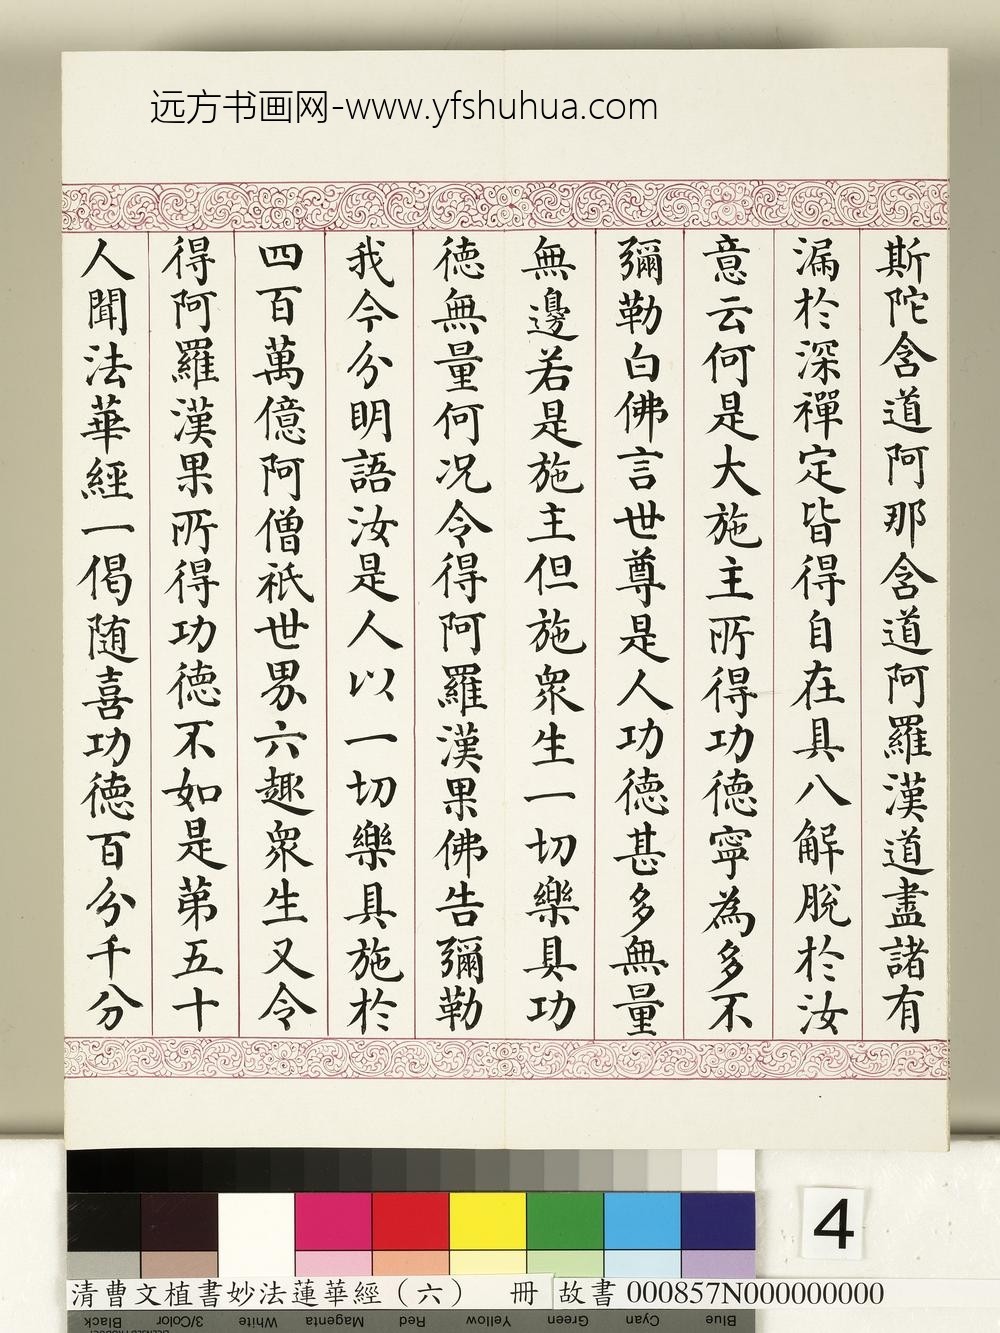 远方书画网-www.yfshuhua.com
斯陀含道阿那含道阿羅漢道盡諸有
漏於深禪定皆得自在具八解脫於汝
意云何是大施主所得功德寧為多不
彌勒白佛言世尊是人功德甚多無量
無邊若是施主但施眾生一切樂具功
德無量何况令得阿羅漢果佛告彌勒
我今分明語汝是人以一切樂具施於
四百萬億阿僧祇世界六趣眾生又令
得阿羅漢果所得功德不如是第五十
人聞法華經一偈随喜功德百分千分
4
清曹文植書妙法蓮華經（六） 冊 故書000857N000000000
Black 3/Color White Magenta Red Yellow Green Cyan Blue